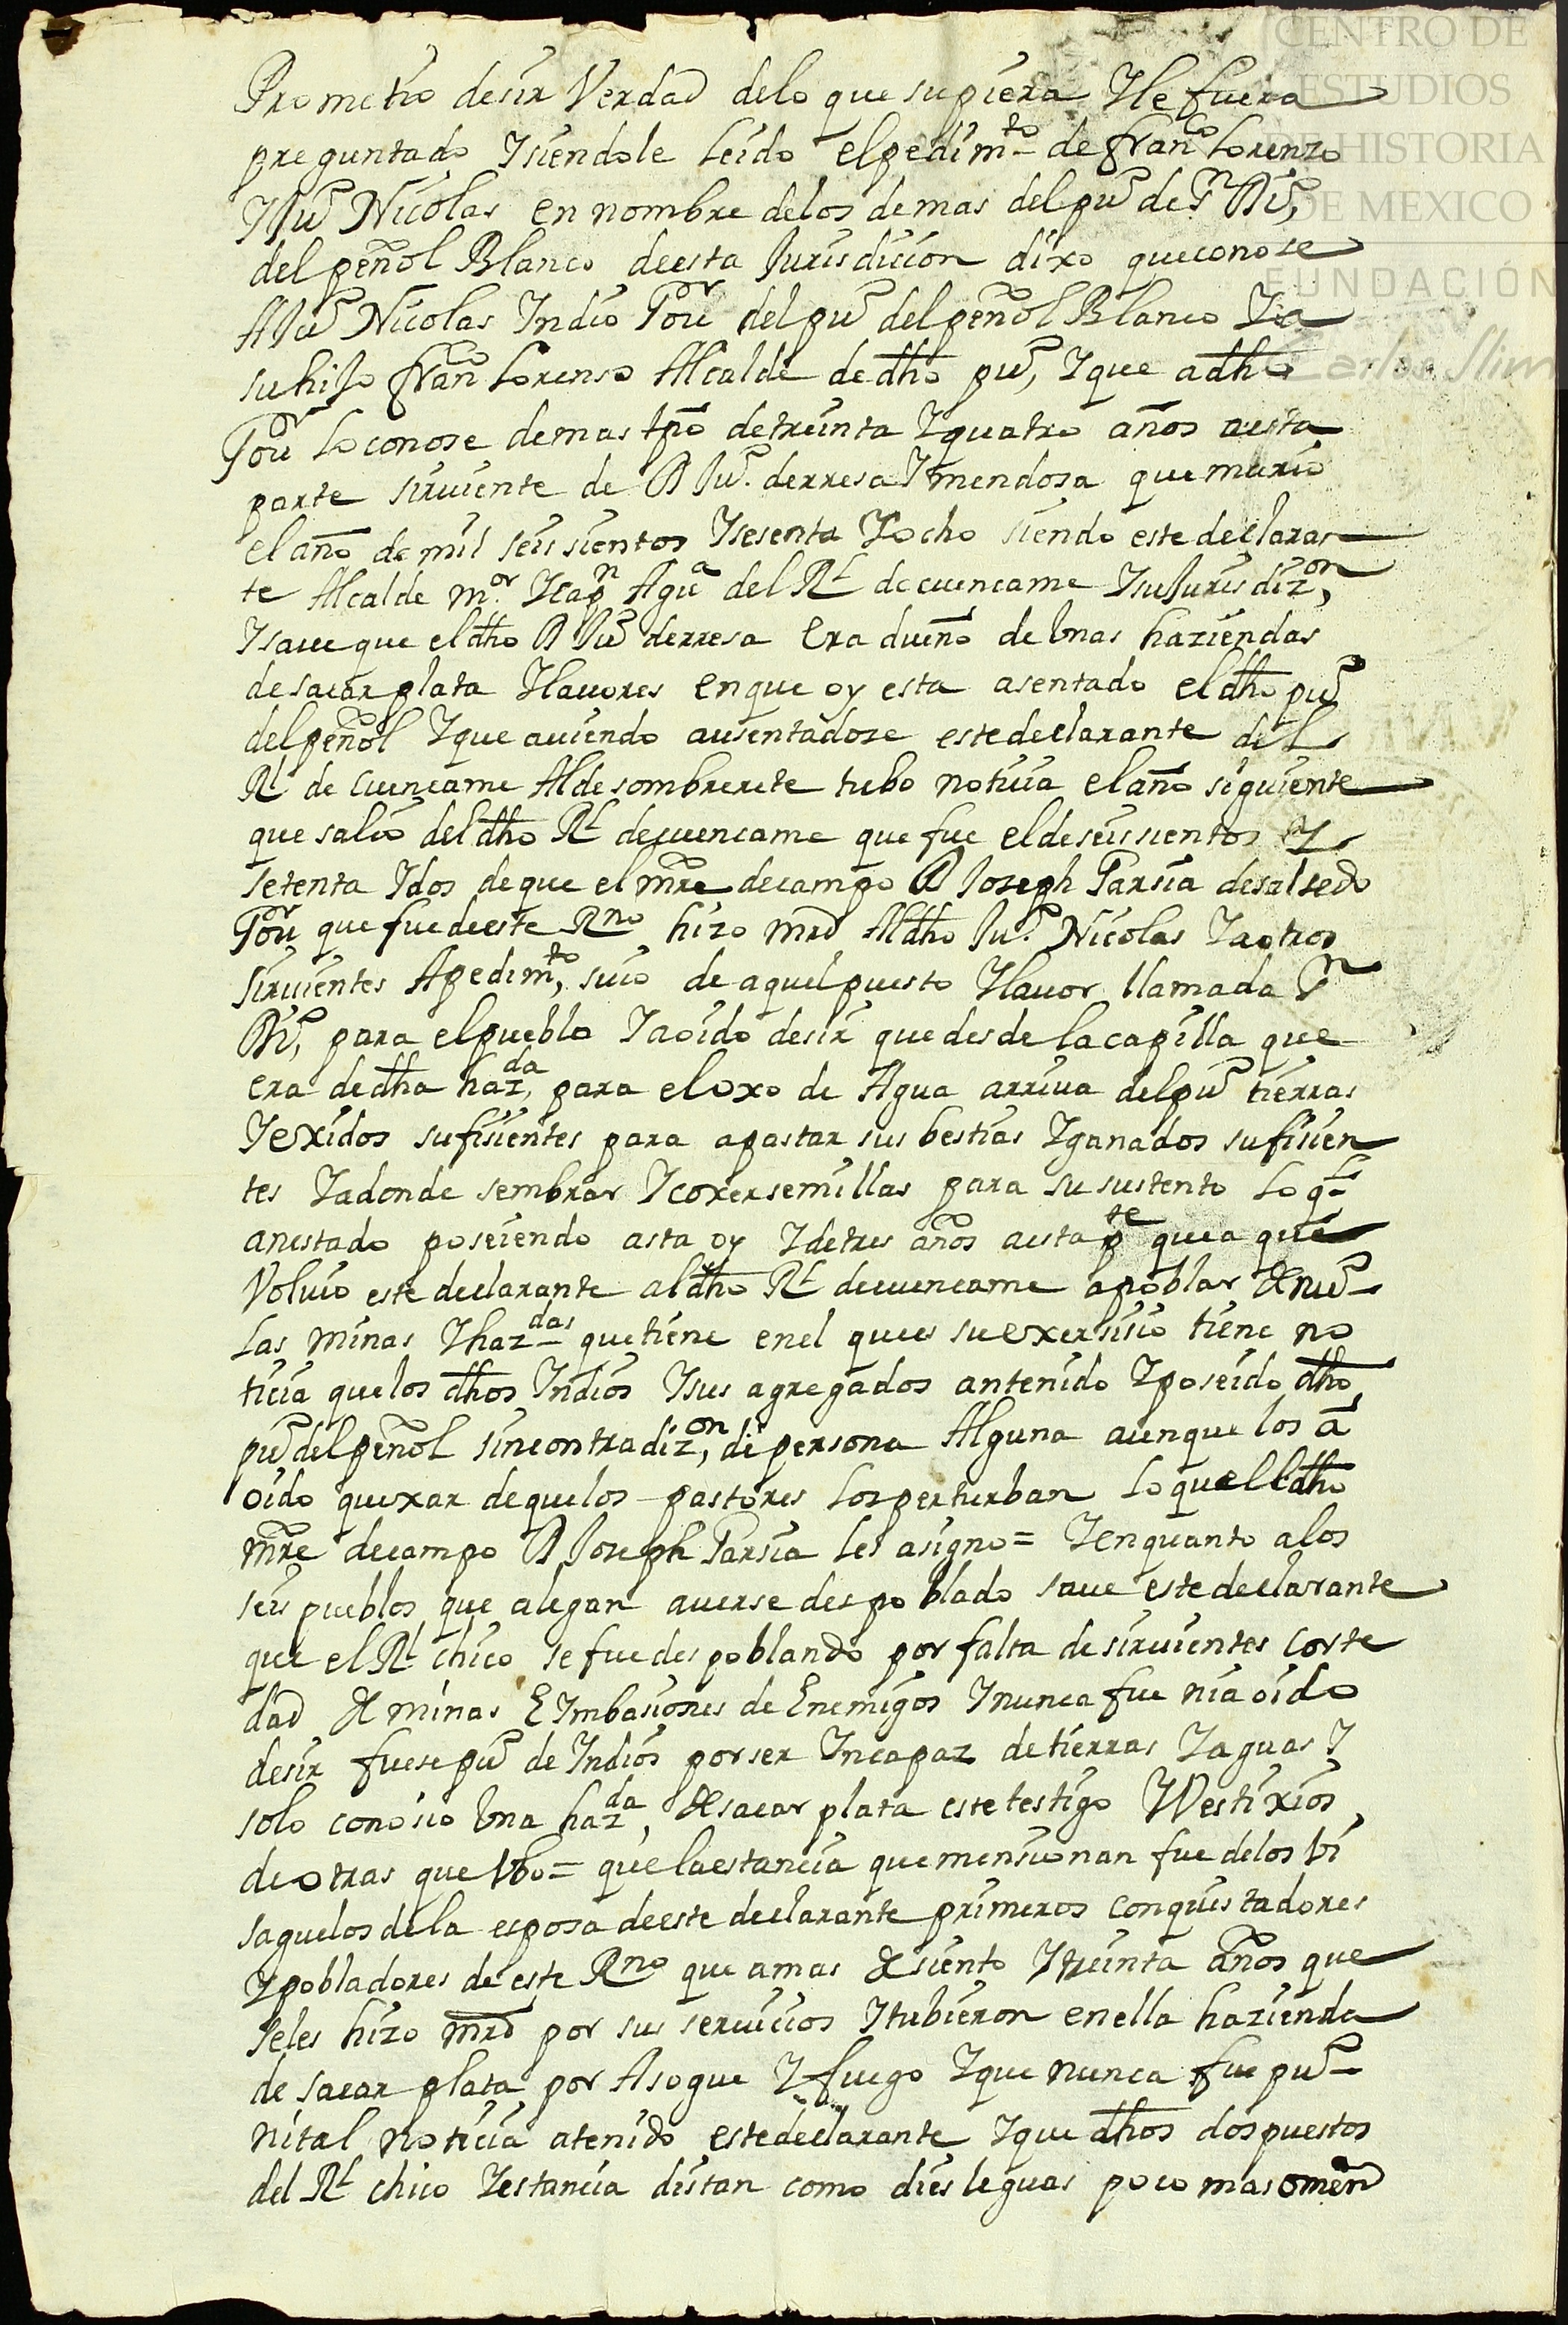 CENTRO DE
ESTUDIOS
DE HISTORIA
DE MEXICO
FUNDACIÓN
Carlos Slim
Prometio desir Verdad delo que supiera Yle fuera
preguntado Ysiendole leido elpedimto de franco Lorenzo
YJuo Nicolas en nombre delos demas delpuo de Sn
delpeñol Blanco deesta Jurisdision dixo queconose
AJuo Nicolas Yndio Gor delpuo delpeñol Blanco Ya
suhijo franco Lorenso Alcalde de dho puo, Yque adho
Gor loconose demas tpo detreinta Yquatro años aesta
parte siruiente de D Juo. derresa Ymendosa que murio
elaño de mil seissientos Ysesenta Yocho siendo este declaran
te Alcalde mor. Ycapn Agua del Rl decuencame YsuJurisdizon,
Ysaue que eldho D Juo derresa Era dueño de Vnas haziendas
desacar plata Ylauores enque oy esta asentado eldho puo
delpeñol Yque auiendo ausentadose estedeclarante del
Rl de Cuencame Aldesombrerete tubo notisia elaño siguiente
que salio deldho Rl decuencame que fue eldeseissientos Y
setenta Ydos deque el mre decampo D Joseph Garsia desalsedo
Gor que fuedeeste Rno hizo mrd Aldho Juo. Nicolas Yaotros
siruientes Apedimto, suio de aquelpuesto Ylauor llamada Sn
para elpueblo Yaoido desir quedesde lacapilla que
era dedha hazda, para eloxo de Agua arriua delpuo tierras
Yexidos sufisientes para apastar sus bestias Yganados sufisien
tes Yadonde sembrar Ycoxersemillas para su sustento lo ql
anestado poseiendo asta oy Ydetres años aesta pte quea que
Voluio este declarante aldho Rl decuencame apoblar de nuo
las minas Yhazdas quetiene enel quees suexersisio tiene no
tisia quelos dhos Yndios Ysus agregados antenido Yposeido dho
puo delpeñol sincontradizon, de persona Alguna aunque los a
oido quexar dequelos pastores losperturban lo quelldho
mre decampo D Joseph Garsia les asigno = Yenquanto alos
seis pueblos que alegan auerse despoblado saue estedeclarante
que el Rl chico se fuedespoblando por falta desiruientes corte
dad de minas EYmbasiones de Enemigos Ynunca fue nia oido
desir fuesepuo de Yndios porser Yncapaz detierras Yaguas Y
solo conosio Vna hazda, desacar plata estetestigo YVestixios
deotras que Vbo = que laestancia quemensionan fue delos Vi
saguelosdela esposa deeste declarante primeros conquistadores
Ypobladores deeste Rno que amas desiento Ytreinta años que
seles hizo mrd por sus seruicios Ytubieron enella hazienda
desacar plata por Asogue Yfuego Yque nunca fue puo
nital notisia atenido estedeclarante Yque dhos dospuestos
del Rl chico Yestancia distan como diesleguas poco masomen